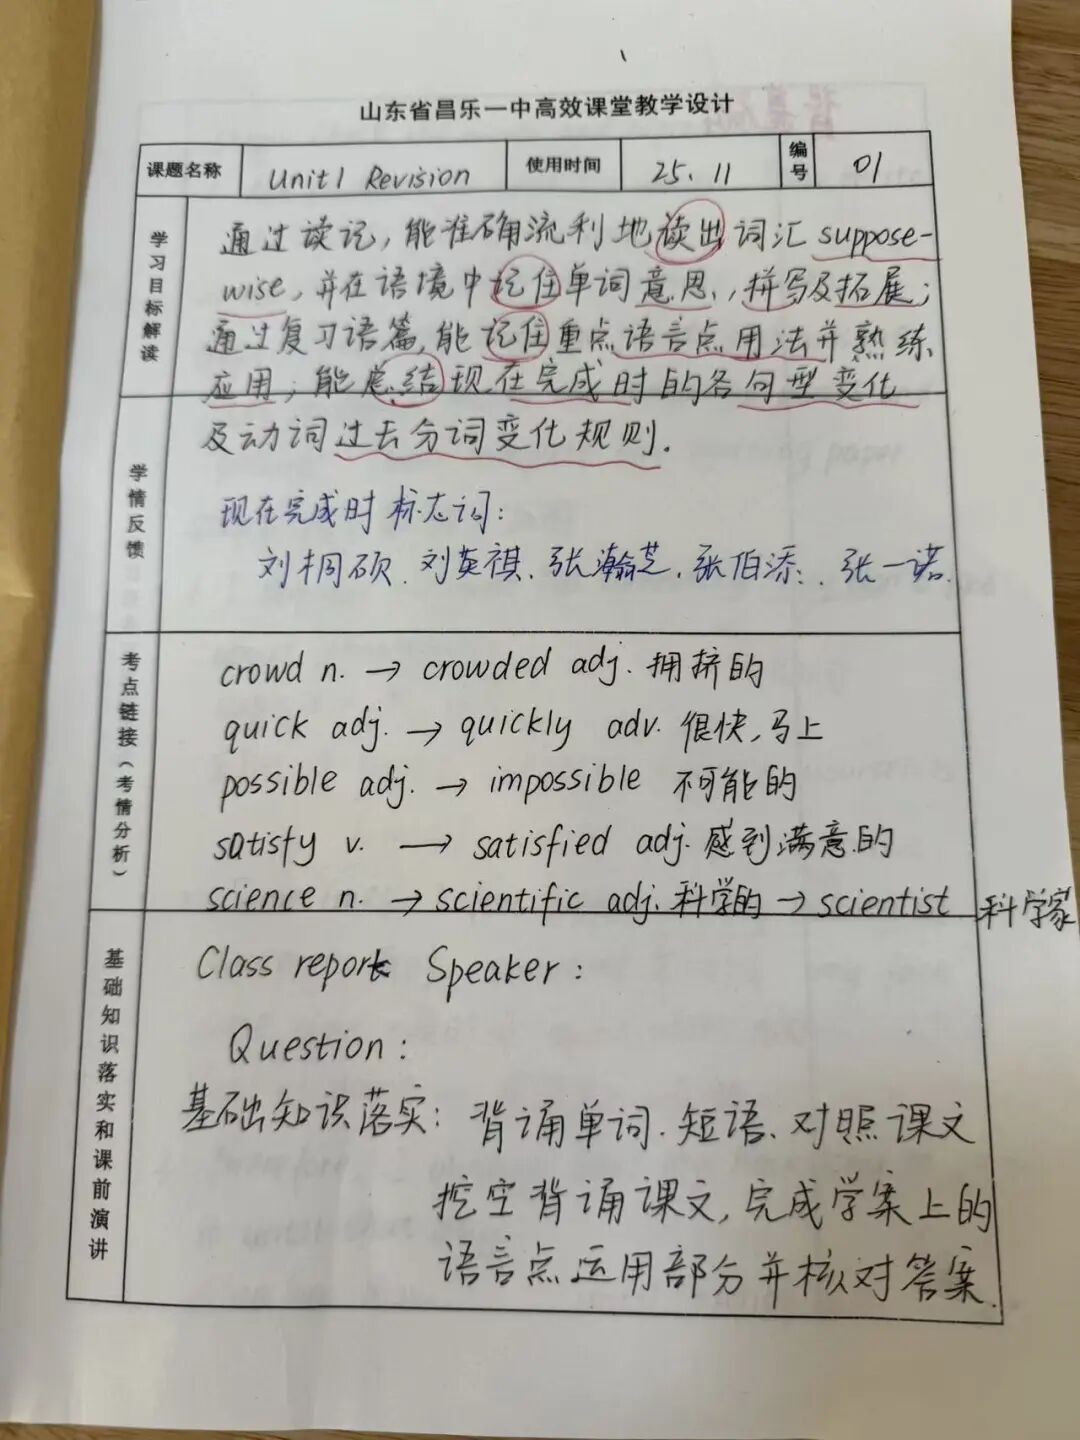 山东省昌乐一中高效课堂教学设计
课题名称 Unit1 Revision 使用时间 25.11 编号 01
学习目标解读
通过读记，能准确流利地读出词汇suppose-
wise，并在语境中记住单词意思，拼写及拓展；
通过复习语篇，能记住重点语言点用法并熟练
应用；能总结现在完成时的各句型变化
及动词过去分词变化规则.
学情反馈
现在完成时标志词：
刘桐硕、刘英祺、张瀚芝、张伯添、张一诺
考点链接（考情分析）
crowd n. → crowded adj. 拥挤的
quick adj. → quickly adv. 很快,马上
possible adj. → impossible 不可能的
satisfy v. → satisfied adj. 感到满意的
science n. → scientific adj. 科学的 → scientist 科学家
基础知识落实和课前演讲
Class report Speaker：
Question：
基础知识落实：背诵单词、短语、对照课文
挖空背诵课文，完成学案上的
语言点运用部分并核对答案.